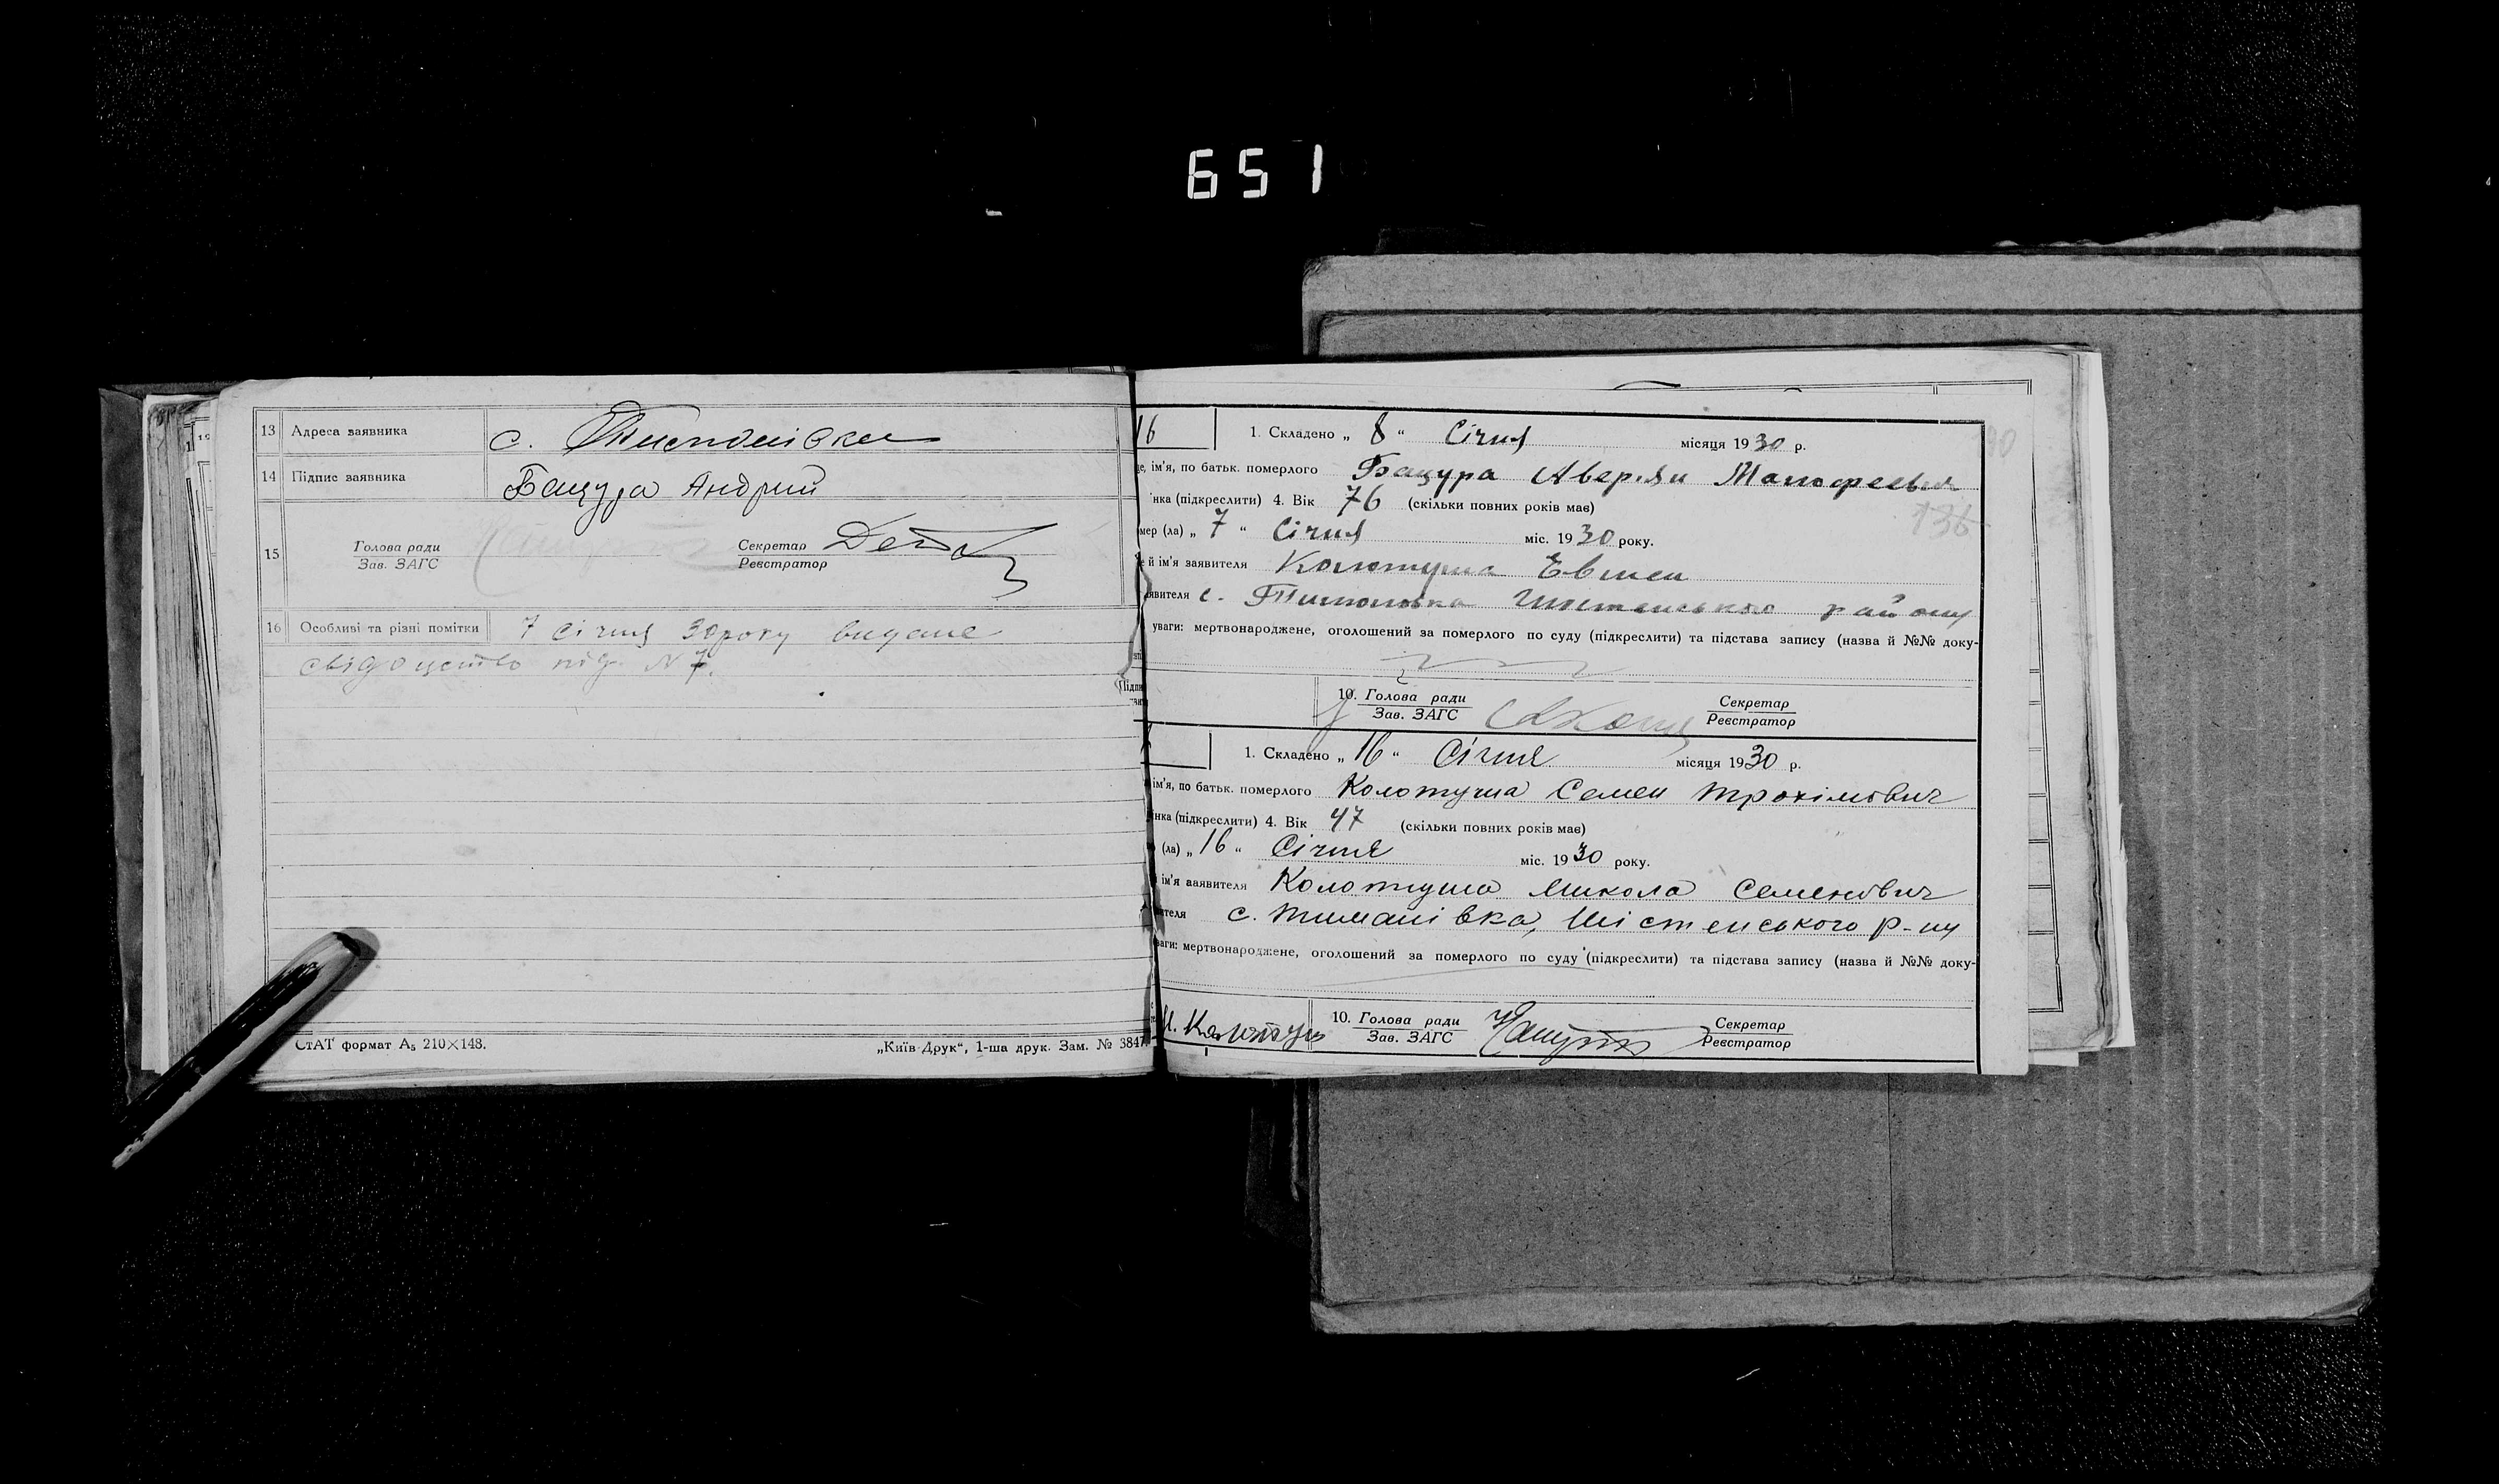 651
13 Адреса заявника с. Тимонівка
14 Підпис заявника Бацура Андрий
15 Голова ради Зав. ЗАГС Секретар Реєстратор
16 Особливі та різні помітки 7 січня 30 року видане
свідоцтво під N 7.
СтАТ формат А₅ 210×148. „Київ-Друк“, 1-ша друк. Зам. № 3847
16 1. Складено „ 8 “ Січня місяця 1930 р.
ім'я, по батьк. померлого Бацура Аверян Матофеевич
інка (підкреслити) 4. Вік 76 (скільки повних років має)
мер (ла) „ 7 “ Січня міс. 1930 року.
й ім'я заявителя Колотуша
явителя с. Тимоновка району
уваги: мертвонароджене, оголошений за померлого по суду (підкреслити) та підстава запису (назва й №№ доку-
10. Голова ради Зав. ЗАГС Секретар Реєстратор
1. Складено „ 16 “ Січня місяця 1930 р.
ім'я, по батьк. померлого Колотуша Семен Трохімович
інка (підкреслити) 4. Вік 47 (скільки повних років має)
(ла) „ 16 “ Січня міс. 1930 року.
ім'я заявителя Колотуша Микола Семенович
ителя с. Тиманівка, Шістенського р-ну
ваги: мертвонароджене, оголошений за померлого по суду (підкреслити) та підстава запису (назва й №№ доку-
10. Голова ради Зав. ЗАГС Секретар Реєстратор